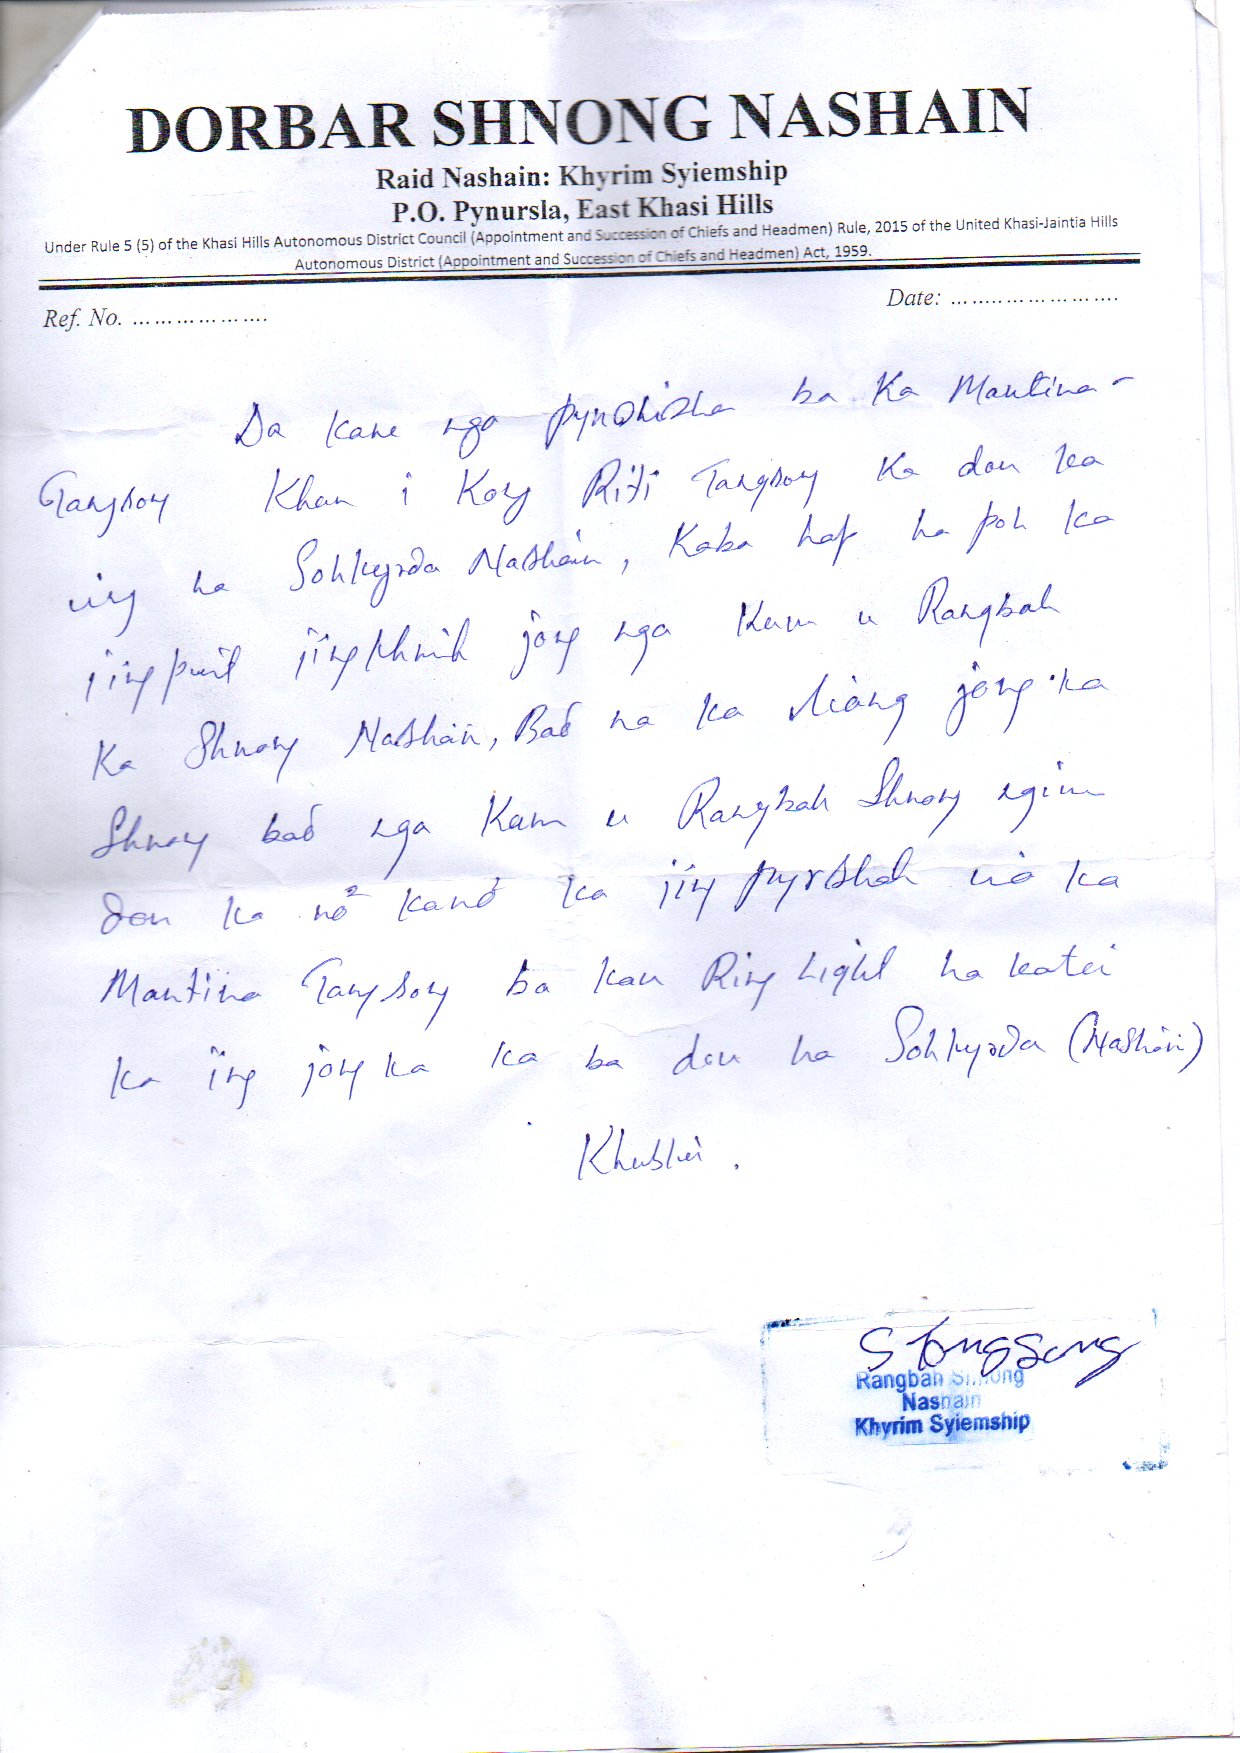 DORBAR SHNONG NASHAIN
Raid Nashain: Khyrim Syiemship
P.O. Pynursla, East Khasi Hills
Under Rule 5 (5) of the Khasi Hills Autonomous District Council (Appointment and Succession of Chiefs and Headmen) Rule, 2015 of the United Khasi-Jaintia Hills
Autonomous District (Appointment and Succession of Chiefs and Headmen) Act, 1959.
Ref. No. ………………
Date: ………………….
Da kane nga pynshisha ba Ka Mantina-
Tangsong Khun i Kong Riti Tangsong Ka don ka
ing ha Sohkyrda Nashain, Kaba hap ha poh ka
jingpeit jingkhmih jong nga Kum u Rangbah
Ka Shnong Nashain, Bad na ka liang jong ka
Shnong bad nga Kum u Rangbah Shnong ngim
don ka no² kano² ka jing pyrshah ia ka
Mantina Tangsong ba kan Ring Light ha katei
ka ing jong ka ka ba don ha Sohkyrda (Nashain)
Khublei.
S Tongsong
Rangbah Shnong
Nashain
Khyrim Syiemship